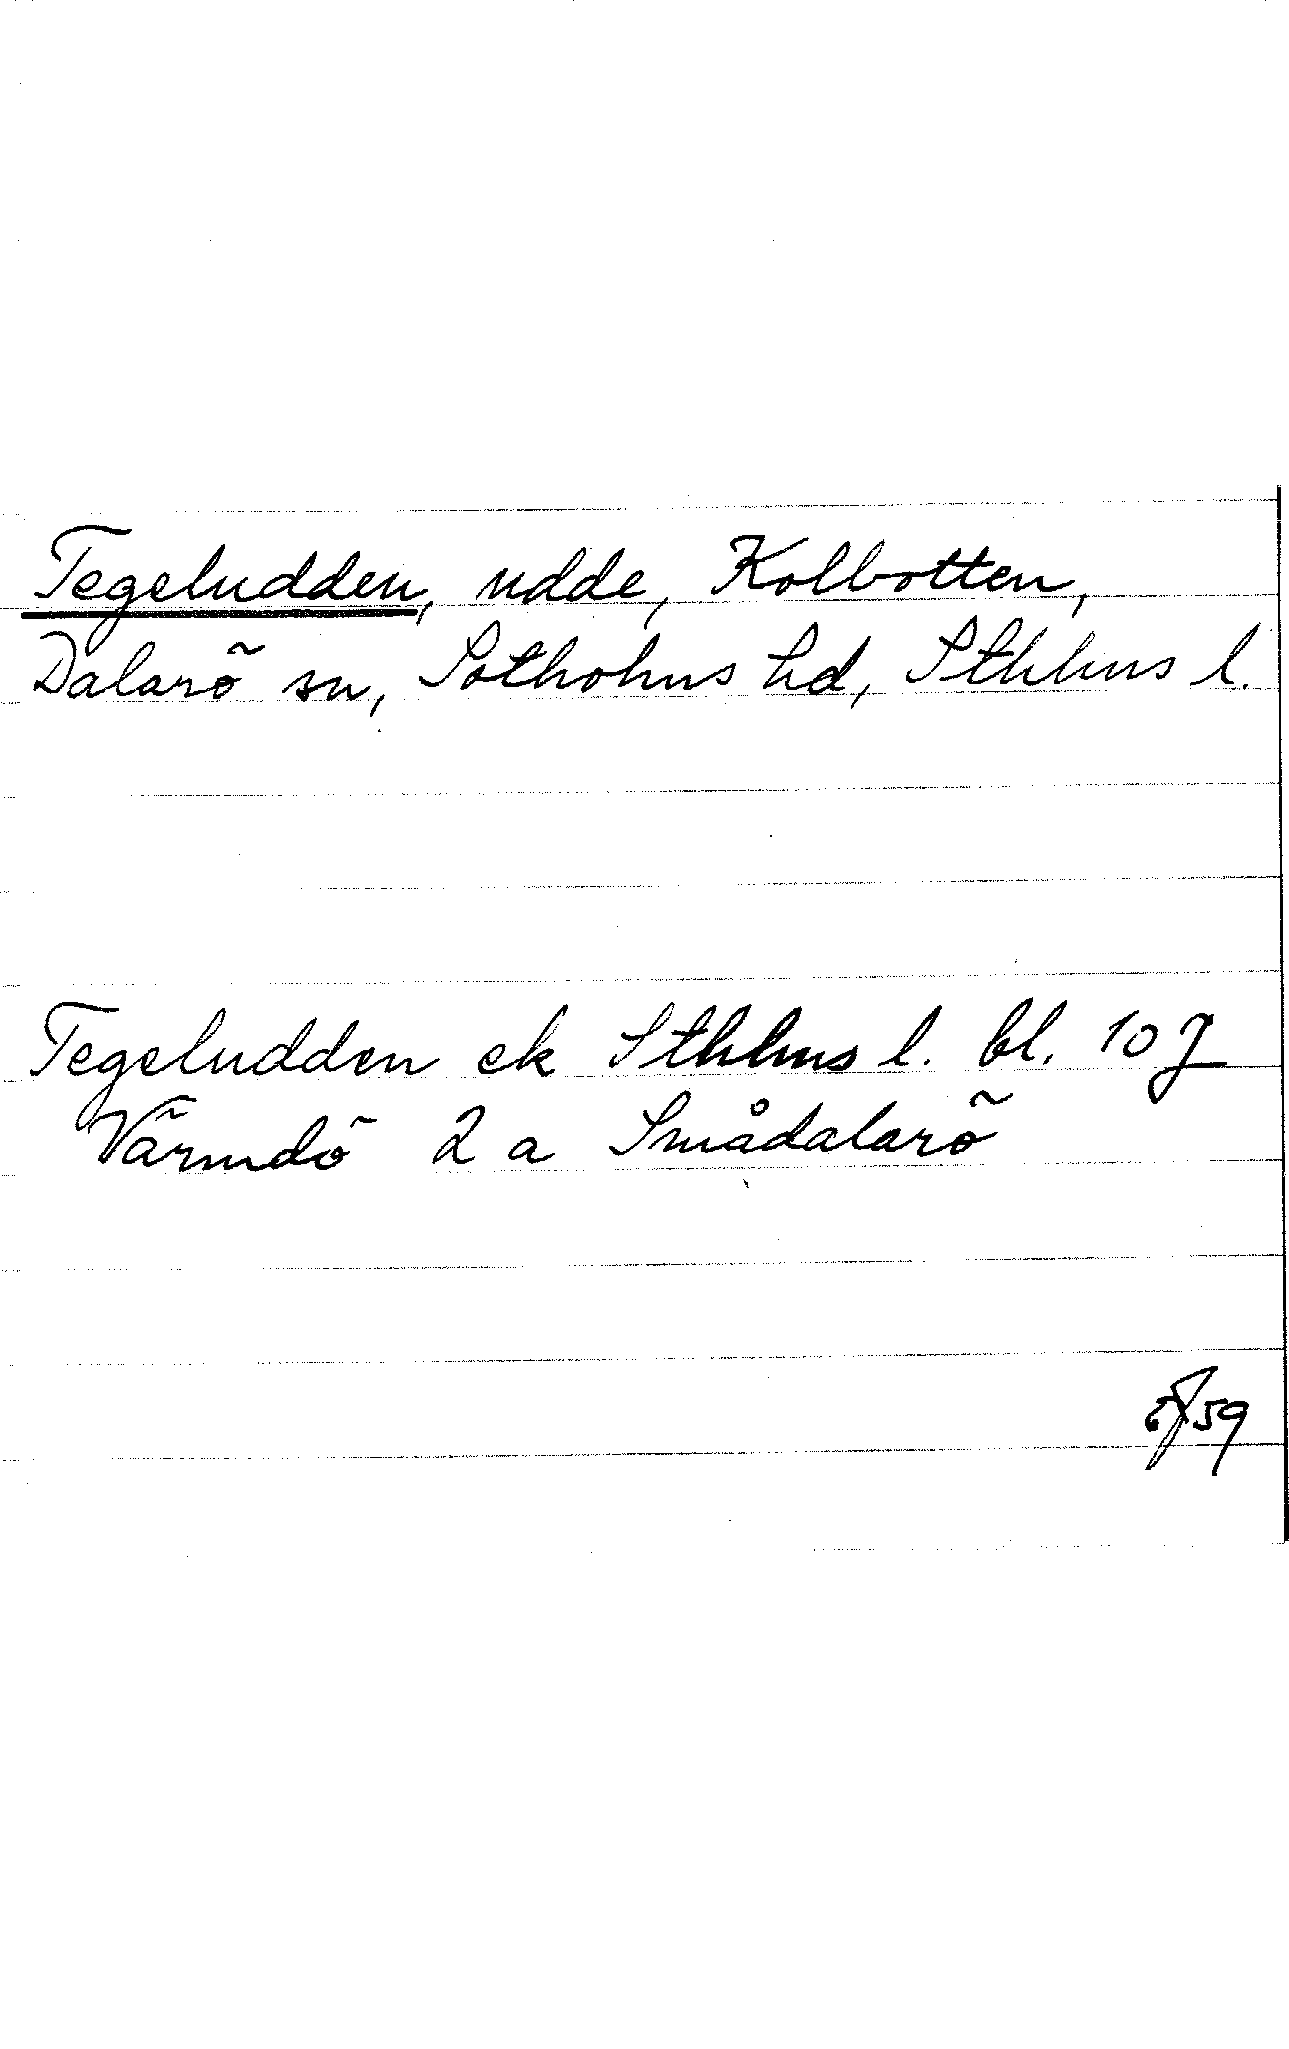 Tegeludden, udde, Kolbotten,
Dalarö sn, Sotholms hd, Sthlms l.
Tegeludden ek Sthlms l. bl. 10 J
Värmdö 2 a Smådalarö
59